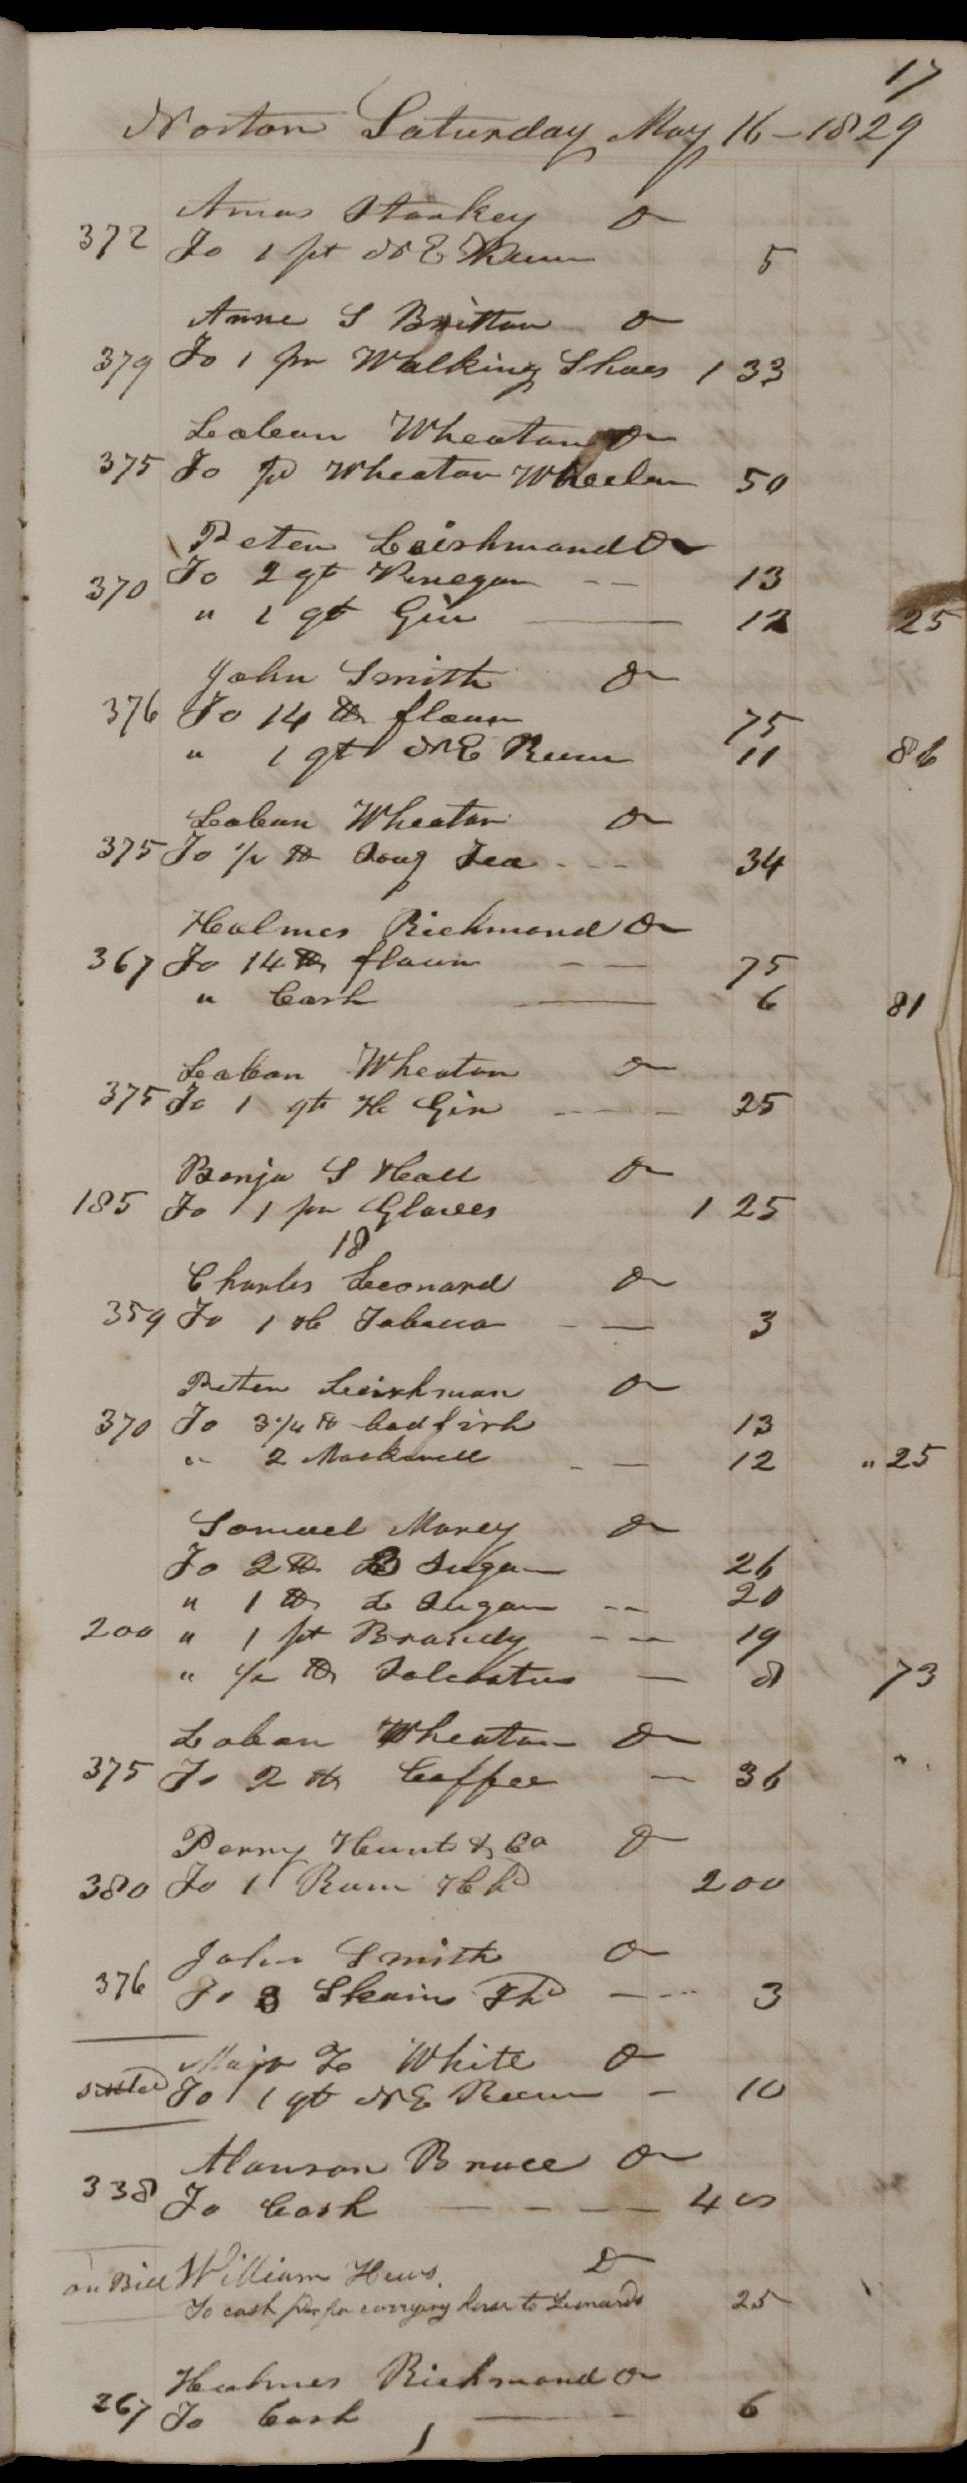 17
Norton Saturday May 16 - 1829
Amos Starkey Dr
372 To 1 pt N E Rum 5
Anne S Britton Dr
379 To 1 pr Walking Shoes 1 33
Laban Wheaton Dr
375 To pd Wheaton Wheeler 50
Peter Leishmond Dr
370 To 2 qt Vinegar -- 13
" 1 qt Gin — 12 25
John Smith Dr
376 To 14 lb flour 75
" 1 qt N E Rum 11 86
Laban Wheaton Dr
375 To 1/2 lb Soug Tea --- 34
Holmes Richmond Dr
367 To 14 lb flour -- 75
" Cash — 6 81
Laban Wheaton Dr
375 To 1 qt H Gin ---- 25
Benja S Hall Dr
185 To 1 pr Gloves 1 25
18
Charles Leonard Dr
359 To 1 Hd Tobacco -- 3
Peter Leishman Dr
370 To 3 1/4 lb Codfish 13
" 2 Mackerell -- 12 " 25
Samuel Morey Dr
To 2 lb B Sugar 26
" 1 lb L Sugar -- 20
200 " 1 pt Brandy --- 19
" 1/2 lb Saleratus — 8 73
Laban Wheaton Dr
375 To 2 lb Coffee — 36
Perry Hunt & Co Dr
380 To 1 Rum Hhd 2 00
John Smith Dr
376 To 3 Skein Thd --- 3
Major L White Dr
settled To 1 qt N E Rum - 10
Alanson Brace Dr
338 To Cash ---- 4 00
on Bill William Hews. Dr
To cash for carrying horse to Leonards 25
Holmes Richmond Dr
267 To Cash — - 6